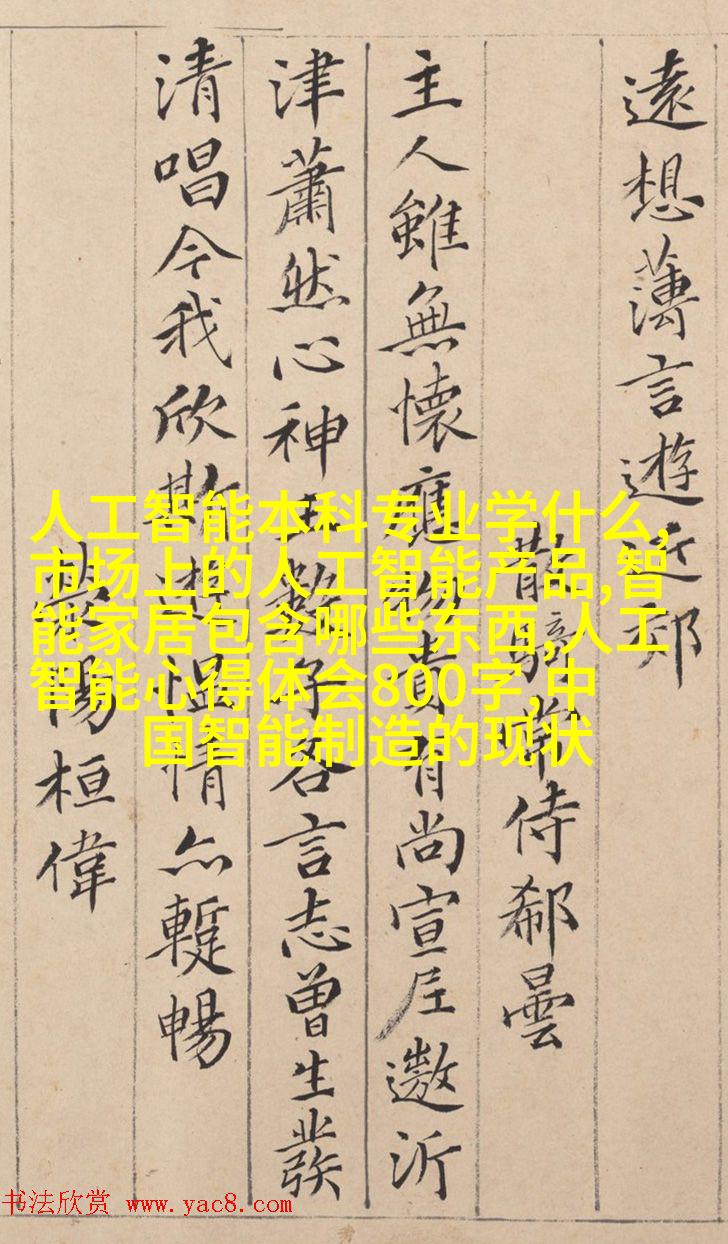 遠想薄言遊近郊
散騎常侍郗曇
主人雖無懷應物貴有尚宣尼遨沂
津蕭然心神王數子各言志曾生發
清唱今我欣斯遊慍情亦蹔暢
滎陽桓偉
人工智能本科专业学什么,
市场上的人工智能产品,智
能家居包含哪些东西,人工
智能心得体会800字,中
国智能制造的现状
书法欣赏 www.yac8.com